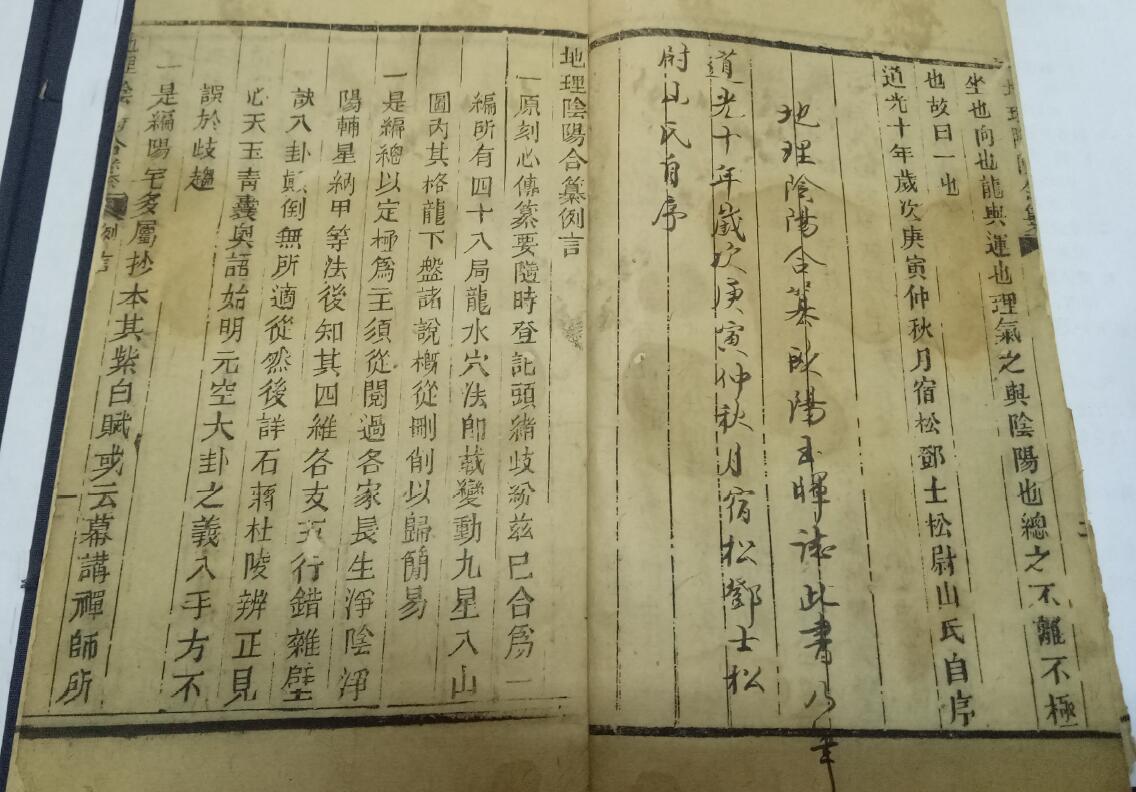 坐也向也龍與運也理氣之與陰陽也總之不離不極
也故曰一也
道光十年歲次庚寅仲秋月宿松鄧士松尉山氏自序
地理陰陽合纂歐陽玉暉誌此書乃
道光十年歲次庚寅仲秋月宿松鄧士松
尉山氏自序
地理陰陽合纂例言
一原刻心傳纂要隨時登記頭緒歧紛茲已合爲一
編所有四十八局龍水穴法師載變動九星入山
圖內其格龍下盤諸說槪從刪削以歸簡易
一是編總以定極爲主須從閱過各家長生淨陰淨
陽輔星納甲等法後知其四維各支五行錯雜壁
訣八卦顛倒無所適從然後詳石蔣杜陵辨正見
心天玉青囊奧語始明元空大卦之義入手方不
誤於歧趨
一是編陽宅多屬抄本其紫白賦或云幕講禪師所